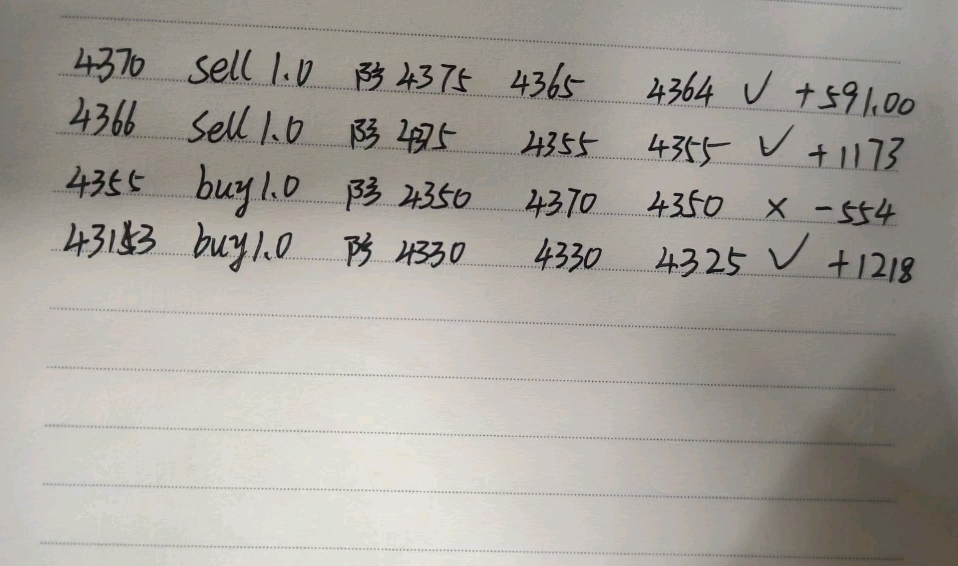 4370 sell 1.0 防 4375 4365 4364 ✓ +591.00
4366 sell 1.0 防 4375 4355 4355 ✓ +1173
4355 buy 1.0 防 4350 4370 4350 × -554
buy 1.0 防 4330 4330 4325 ✓ +1218